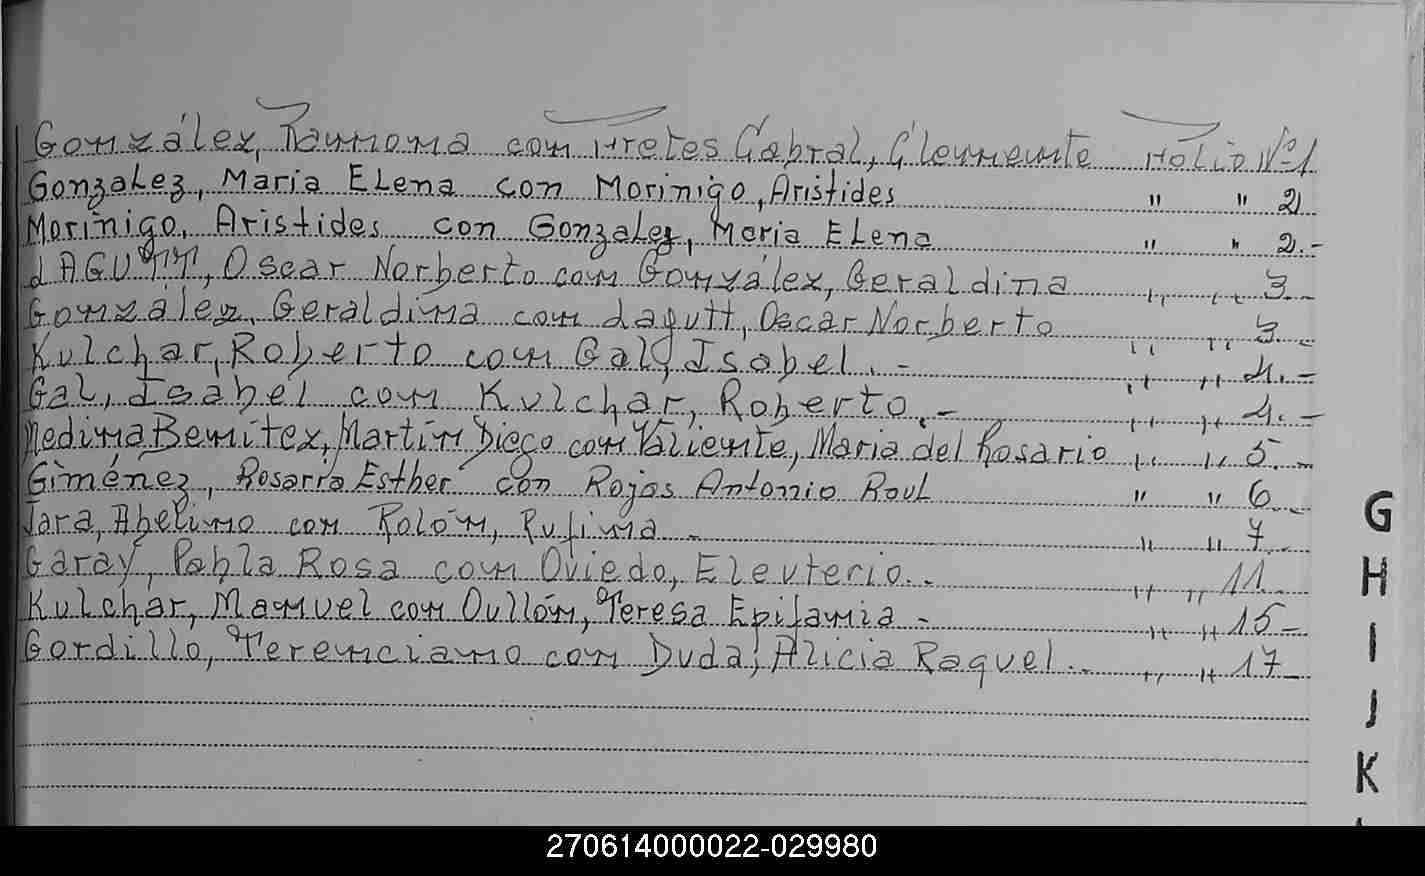 González, Ramona con Fretes Cabral, Clemente Folio Nº 1
Gonzalez, Maria Elena con Morinigo, Aristides " " 2
Morinigo, Aristides con Gonzalez, Maria Elena " " 2.-
dAGUTT, Oscar Norberto con González, Geraldina " " 3.-
González, Geraldina con dagutt, Oscar Norberto " " 3.-
Kulchar, Roberto con Gal, Isabel.- " " 4.-
Gal, Isabel con Kulchar, Roberto.- " " 4.-
Medina Benitez, Martín Diego con Valiente, Maria del Rosario " " 5.-
Giménez, Rosaria Esther con Rojas Antonio Raul " " 6.-
Jara, Abelino con Rolón, Rufina - " " 7.-
Garay, Pabla Rosa con Oviedo, Eleuterio.- " " 11.
Kulchar, Manuel con Oullón, Teresa Epifania - " " 15-
Gordillo, Terenciano con Duda, Alicia Raquel.- " " 17-
G
H
I
J
K
270614000022-029980